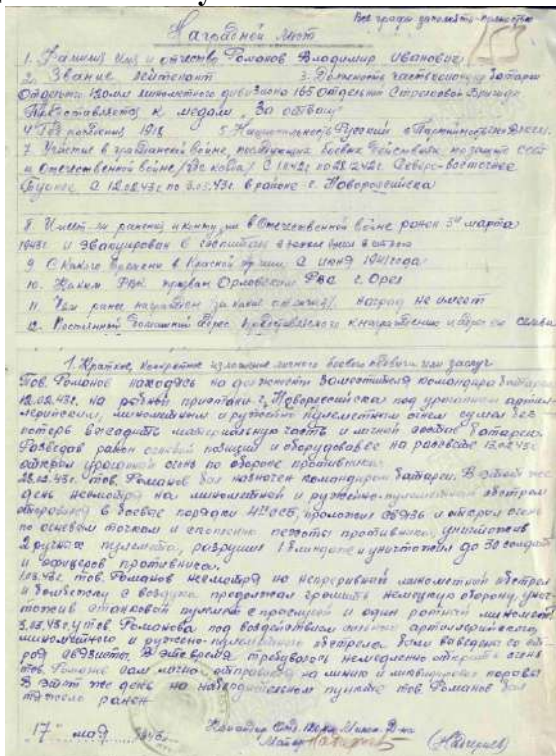 Все графы заполнять полностью
Наградной лист
1. Фамилия Имя и отчество Романов Владимир Иванович
2. Звание лейтенант 3. Должность батареи
Отдельн 120мм минометного дивизиона 165 Отдельной Стрелковой Бригады
Представляется к медали За отвагу
4. Год рождения 5. Национальность Русский 6. Партийность
7. Участие в гражданской войне, последующих боевых действиях по защите СССР
и отечественной войне /где когда/ С по Северо-восточнее
Туапсе С 12.02.43г по 5.03.43г в районе г. Новороссийска
8. Имеет ли ранения и контузии в Отечественной войне ранен 5го марта
1943г и эвакуирован в госпиталь
9. С какого времени в Красной армии С июня 1941 года
10. Каким РВК призван Орловским РВК г. Орел
11. Чем ранее награжден /за какие отличия/ наград не имеет
12. Постоянный домашний адрес представляемого к награждению и адрес его семьи
1. Краткое, конкретное изложение личного боевого подвига или заслуг
Тов. Романов находясь на должности заместителя командира батареи
12.02.43г. на рыбной пристани г. Новороссийска под ураганным артил-
лерийским, минометным и ружейно пулеметным огнем сумел без
потерь высадить материальную часть и личный состав батареи.
Разведав район огневой позиции и оборудовав ее на рассвете 13.02.43г
открыл ураганный огонь по обороне противника.
28.02.43г. тов. Романов был назначен командиром батареи. В этот же
день несмотря на минометный и ружейно-пулеметный обстрел
отправился в боевые порядки 4го ОСБ, проложил связь и открыл огонь
по огневым точкам и скоплению пехоты противника, уничтожив
2 ручных пулемета, разрушил 1 блиндаж и уничтожил до 30 солдат
и офицеров противника.
тов. Романов несмотря на непрерывный минометный обстрел
и бомбежку с воздуха продолжал громить немецкую оборону, унич-
тожив станковый пулемет с прислугой и один ротный миномет.
5.03.43г. у тов Романова под воздействием сильного артиллерийского,
минометного и ружейно-пулеметного обстрела была выведена со ст-
роя связь. В это время требовалось немедленно открыть огонь
тов. Романов сам лично отправился на линию и ликвидировал порывы
В этот же день на наблюдательном пункте тов. Романов был
тяжело ранен
"17" мая 1943г. Командир Отд. 120мм Мином. Д-на
Майор